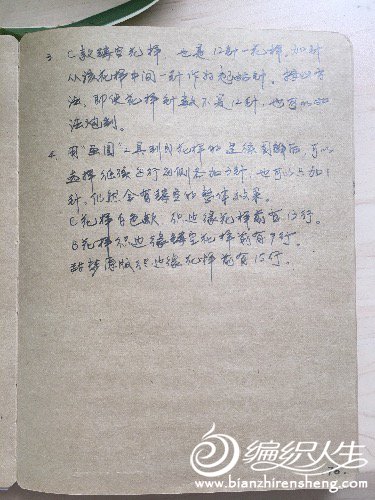 3. C款镂空花样，也是12针一花样，加针
从该花样中间一针作为起始针。按此方
法，即使花样针数不是12针，也可以如
法炮制。
4. 用“画圆”工具到自花样的
选择继续 行两侧各加1针，也可以只加1
针，仍然会有镂空的整体效果。
C花样白色款，织边缘花样前有13行。
B花样织边缘镂空花样前有9行。
甜梦原版织边缘花样前有15行。
76.
编织人生
www.bianzhirensheng.com